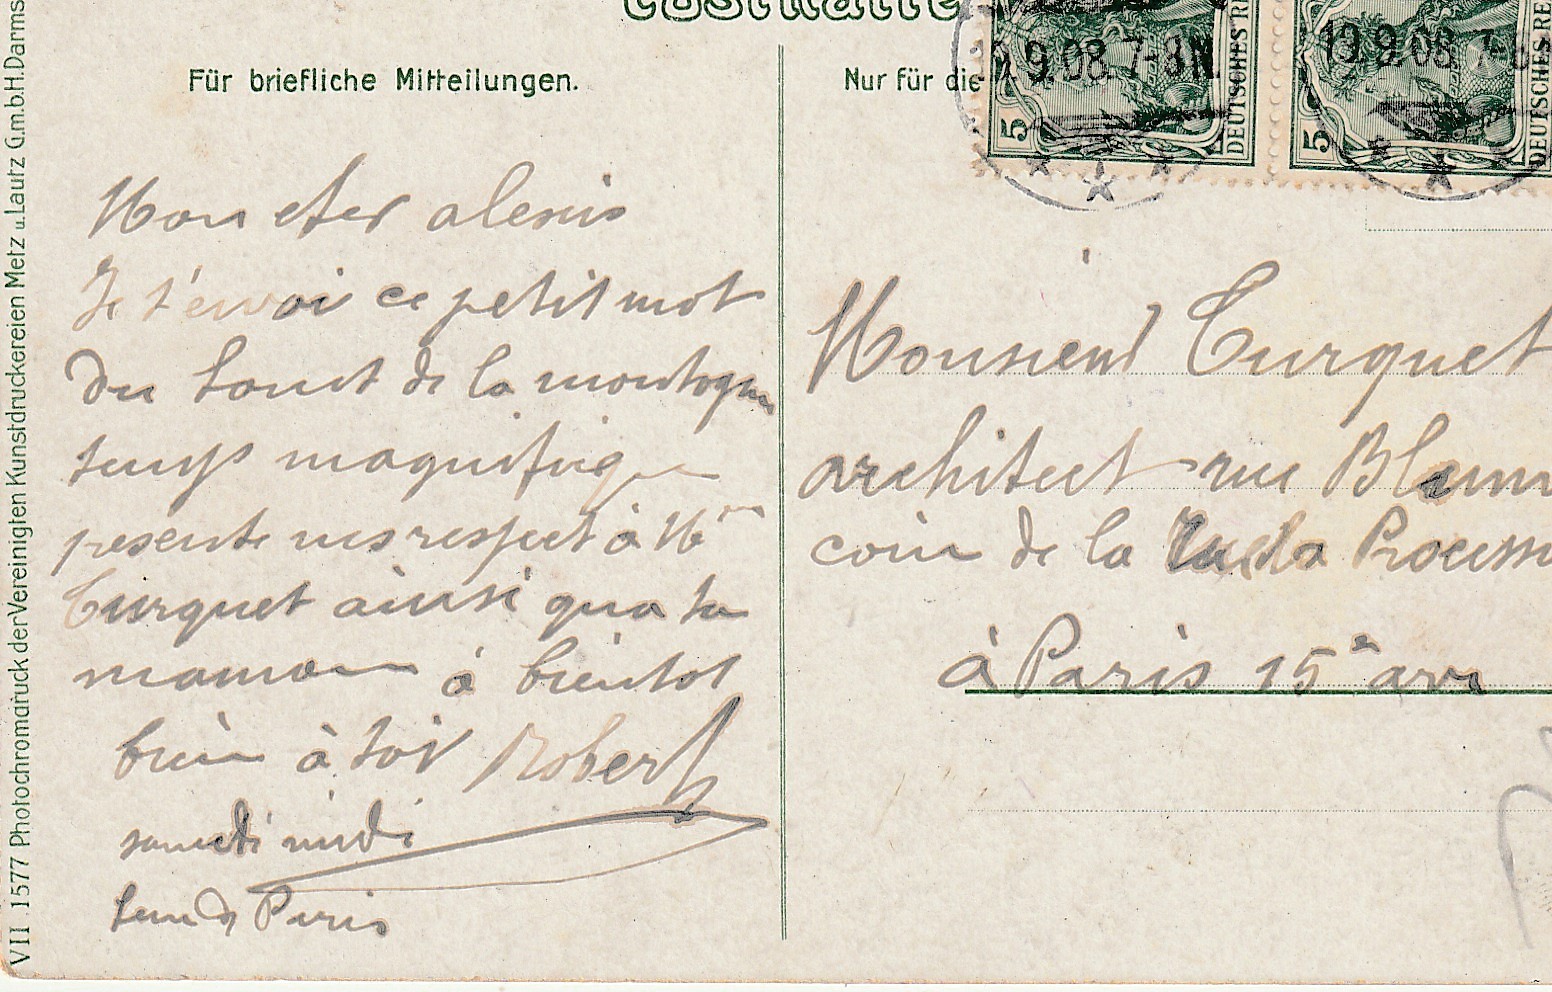 Postkarte
Für briefliche Mitteilungen.
Nur für die
19.9.08.7-8N.
19.9.08.7-8
5
DEUTSCHES RE
5
DEUTSCHES RE
Mon cher alexis
Je t'envoi ce petit mot
du haut de la montagne
temps magnifique
presente mes respect à Mme
Turquet ainsi qua ta
maman à bientot
bien à toi Robert
samedi midi
Paris
Monsieur Turquet
architect rue
coin de la Procession
à Paris 15e arr
VII 1577 Photochromdruck der Vereinigten Kunstdruckereien Metz u. Lautz G.m.b.H. Darms